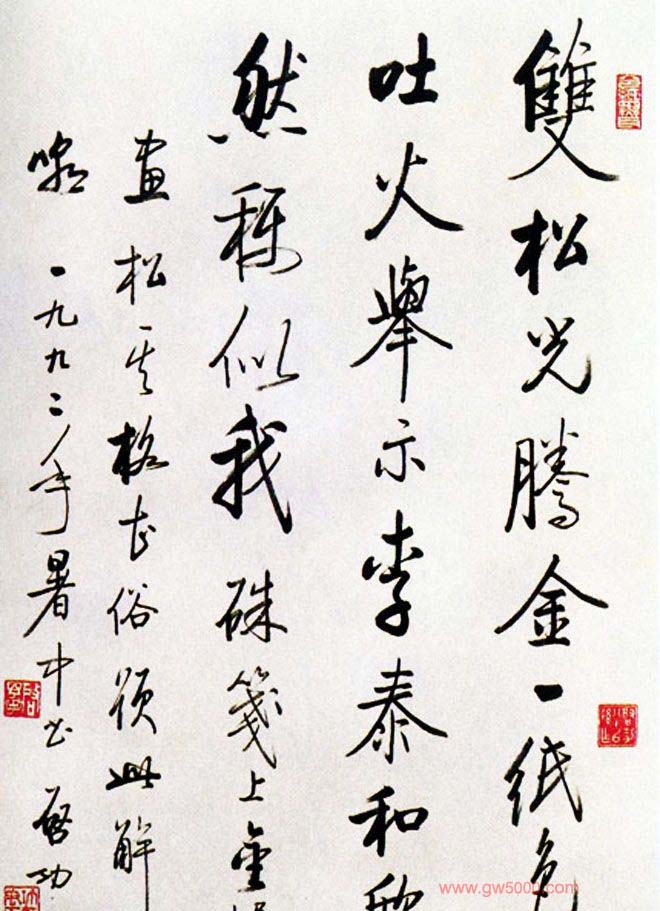 雙松光騰金一紙
吐火舉示李泰和欣
然稱似我 硃箋上金
畫松其格甚俗須此解
嘲 一九九二年暑中書 啓功
www.gw5000.com